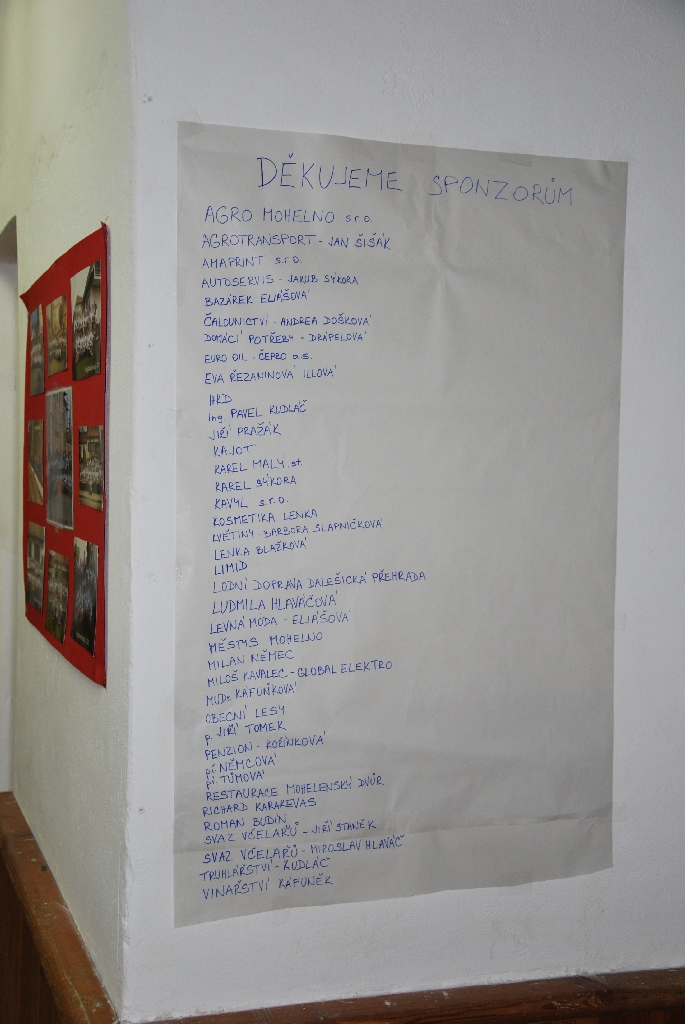 DĚKUJEME SPONZORŮM
AGRO MOHELNO s.r.o.
AGROTRANSPORT - JAN ŠIŠÁK
AMAPRINT s.r.o.
AUTOSERVIS - JAKUB SÝKORA
BAZÁREK ELIÁŠOVÁ
ČALOUNICTVÍ - ANDREA DOŠKOVÁ
DOMÁCÍ POTŘEBY - DRÁPELOVÁ
EURO OIL - ČEPRO a.s.
EVA ŘEZANINOVÁ ILLOVÁ
HKD
Ing. PAVEL KUDLÁČ
JIŘÍ PRAŽÁK
KAJOT
KAREL MALÝ st.
KAREL SÝKORA
KAVYL s.r.o.
KOSMETIKA LENKA
KVĚTINY - BARBORA SLAPNIČKOVÁ
LENKA BLAŽKOVÁ
LIMID
LODNÍ DOPRAVA DALEŠICKÁ PŘEHRADA
LUDMILA HLAVÁČOVÁ
LEVNÁ MODA - ELIÁŠOVÁ
MĚSTYS MOHELNO
MILAN NĚMEC
MILOŠ KAVALEC - GLOBAL ELEKTRO
MUDr. KAFUŇKOVÁ
OBECNÍ LESY
p. JIŘÍ TOMEK
PENZION - KOŽÍNKOVÁ
pí. NĚMCOVÁ
pí. TŮMOVÁ
RESTAURACE MOHELENSKÝ DVŮR
RICHARD KARAKEVAS
ROMAN BUDÍN
SVAZ VČELAŘŮ - JIŘÍ STANĚK
SVAZ VČELAŘŮ - MIROSLAV HLAVÁČ
TRUHLÁŘSTVÍ - KUDLÁČ
VINAŘSTVÍ KAFUNĚK